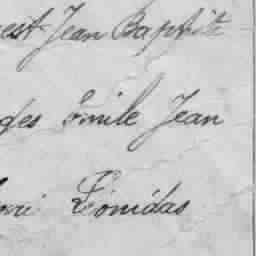 est Jean Baptiste
ges Emile Jean
Léonidas